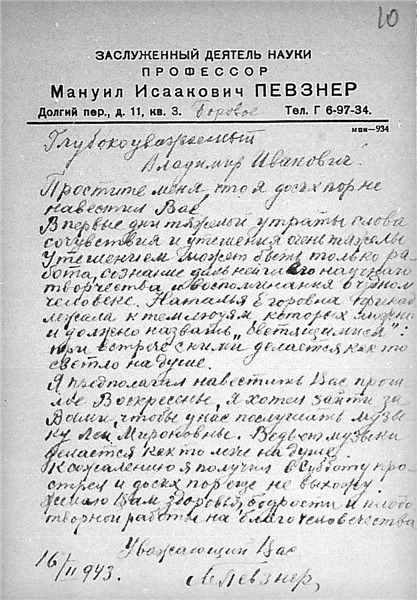 10
ЗАСЛУЖЕННЫЙ ДЕЯТЕЛЬ НАУКИ
ПРОФЕССОР
Мануил Исаакович ПЕВЗНЕР
Долгий пер., д. 11, кв. 3. Боровое Тел. Г 6-97-34.
май—934
Глубокоуважаемый
Владимир Иванович!
Простите меня, что я до сих пор не
навестил Вас
В первые дни тяжелой утраты слова
сочувствия и утешения очень тяжелы
Утешением может быть только ра
бота, сознание дальнейшего научного
творчества и воспоминания о чудном
человеке. Наталья Егоровна принад
лежала к тем людям которых можно
и должно назвать „светящимися":
при встрече с ними делается как то
светло на душе.
Я предполагал навестить Вас прош
лое Воскресенье, я хотел зайти за
Вами, чтобы у нас послушать музы
ку Леи Мироновны. Ведь от музыки
делается как то легче на душе!
К сожалению я получил в Субботу про
стрел и до сих пор еще не выхожу.
Желаю Вам здоровья, бодрости и плодо
творной работы на благо человечества
Уважающий Вас
16/II 943. М Певзнер,